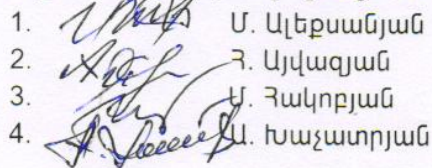 1. Մ. Ալեքսանյան
2. Հ. Այվազյան
3. Մ. Հակոբյան
4. Ա. Խաչատրյան